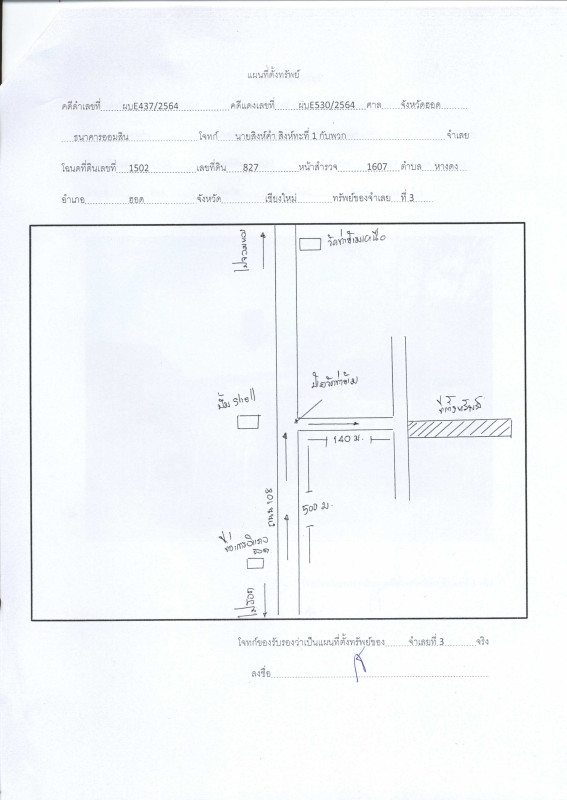 แผนที่ตั้งทรัพย์
คดีดำเลขที่ ผบE437/2564 คดีแดงเลขที่ ผบE530/2564 ศาล จังหวัดฮอด
ธนาคารออมสิน โจทก์ นายสิงห์คำ สิงห์ทะที่ 1 กับพวก จำเลย
โฉนดที่ดินเลขที่ 1502 เลขที่ดิน 827 หน้าสำรวจ 1607 ตำบล หางดง
อำเภอ ฮอด จังหวัด เชียงใหม่ ทรัพย์ของจำเลย ที่ 3
ไปจอมทอง
ปั๊ม shell
ที่ตั้งทรัพย์
140 ม.
500 ม.
ถนน 108
ที่ว่าการอำเภอ
ฮอด
ไปฮอด
โจทก์ของรับรองว่าเป็นแผนที่ตั้งทรัพย์ของ จำเลยที่ 3 จริง
ลงชื่อ